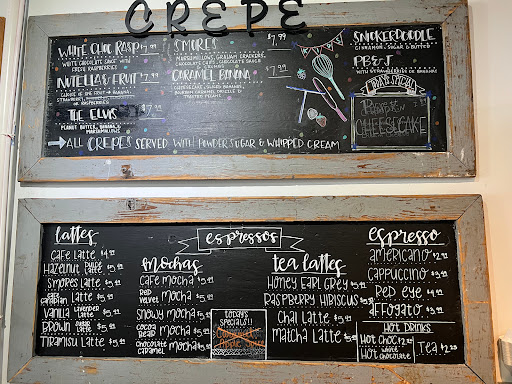 CREPE
WHITE CHOC RASP $7.99
WHITE CHOCOLATE SAUCE WITH
FRESH RASPBERRIES
NUTELLA & FRUIT $7.99
CHOICE OF ONE FRUIT - BANANA,
STRAWBERRY
OR RASPBERRIES
THE ELVIS $7.99
PEANUT BUTTER, BANANA &
MARSHMALLOWS
S'MORES $7.99
MARSHMALLOWS, GRAHAM CRACKERS,
CHOCOLATE CHIPS, CHOCOLATE SAUCE
CARAMEL BANANA $7.99
CHEESECAKE, SLICED BANANAS,
BOURBON CARAMEL DRIZZLE &
TOASTED PECANS
SNICKERDOODLE
CINNAMON, SUGAR & BUTTER
PB & J
WITH STRAWBERRIES OR BANANAS
CHEESECAKE
→ ALL CREPES SERVED WITH POWDER SUGAR & WHIPPED CREAM
espressos
lattes
CAFE LATTE $4.99
HAZELNUT LATTE $5.99
S'MORES LATTE $5.99
LATTE $5.99
VANILLA LAVENDER LATTE $5.99
BROWN SUGAR LATTE $5.99
TIRAMISU LATTE $5.99
mochas
CAFE MOCHA $5.99
RED VELVET MOCHA $5.99
SNOWY MOCHA $5.99
COCOA BEAR MOCHA $5.99
CHOCOLATE CARAMEL MOCHA $5.99
TODAY'S SPECIALS!!
tea lattes
HONEY EARL GREY $5.99
RASPBERRY HIBISCUS $5.99
CHAI LATTE $5.99
MATCHA LATTE $5.99
espresso
AMERICANO $2.99
CAPPUCCINO $3.99
RED EYE $4.99
AFFOGATO $5.99
HOT DRINKS
HOT CHOC $2.99
HOT WHITE CHOCOLATE
TEA $2.99